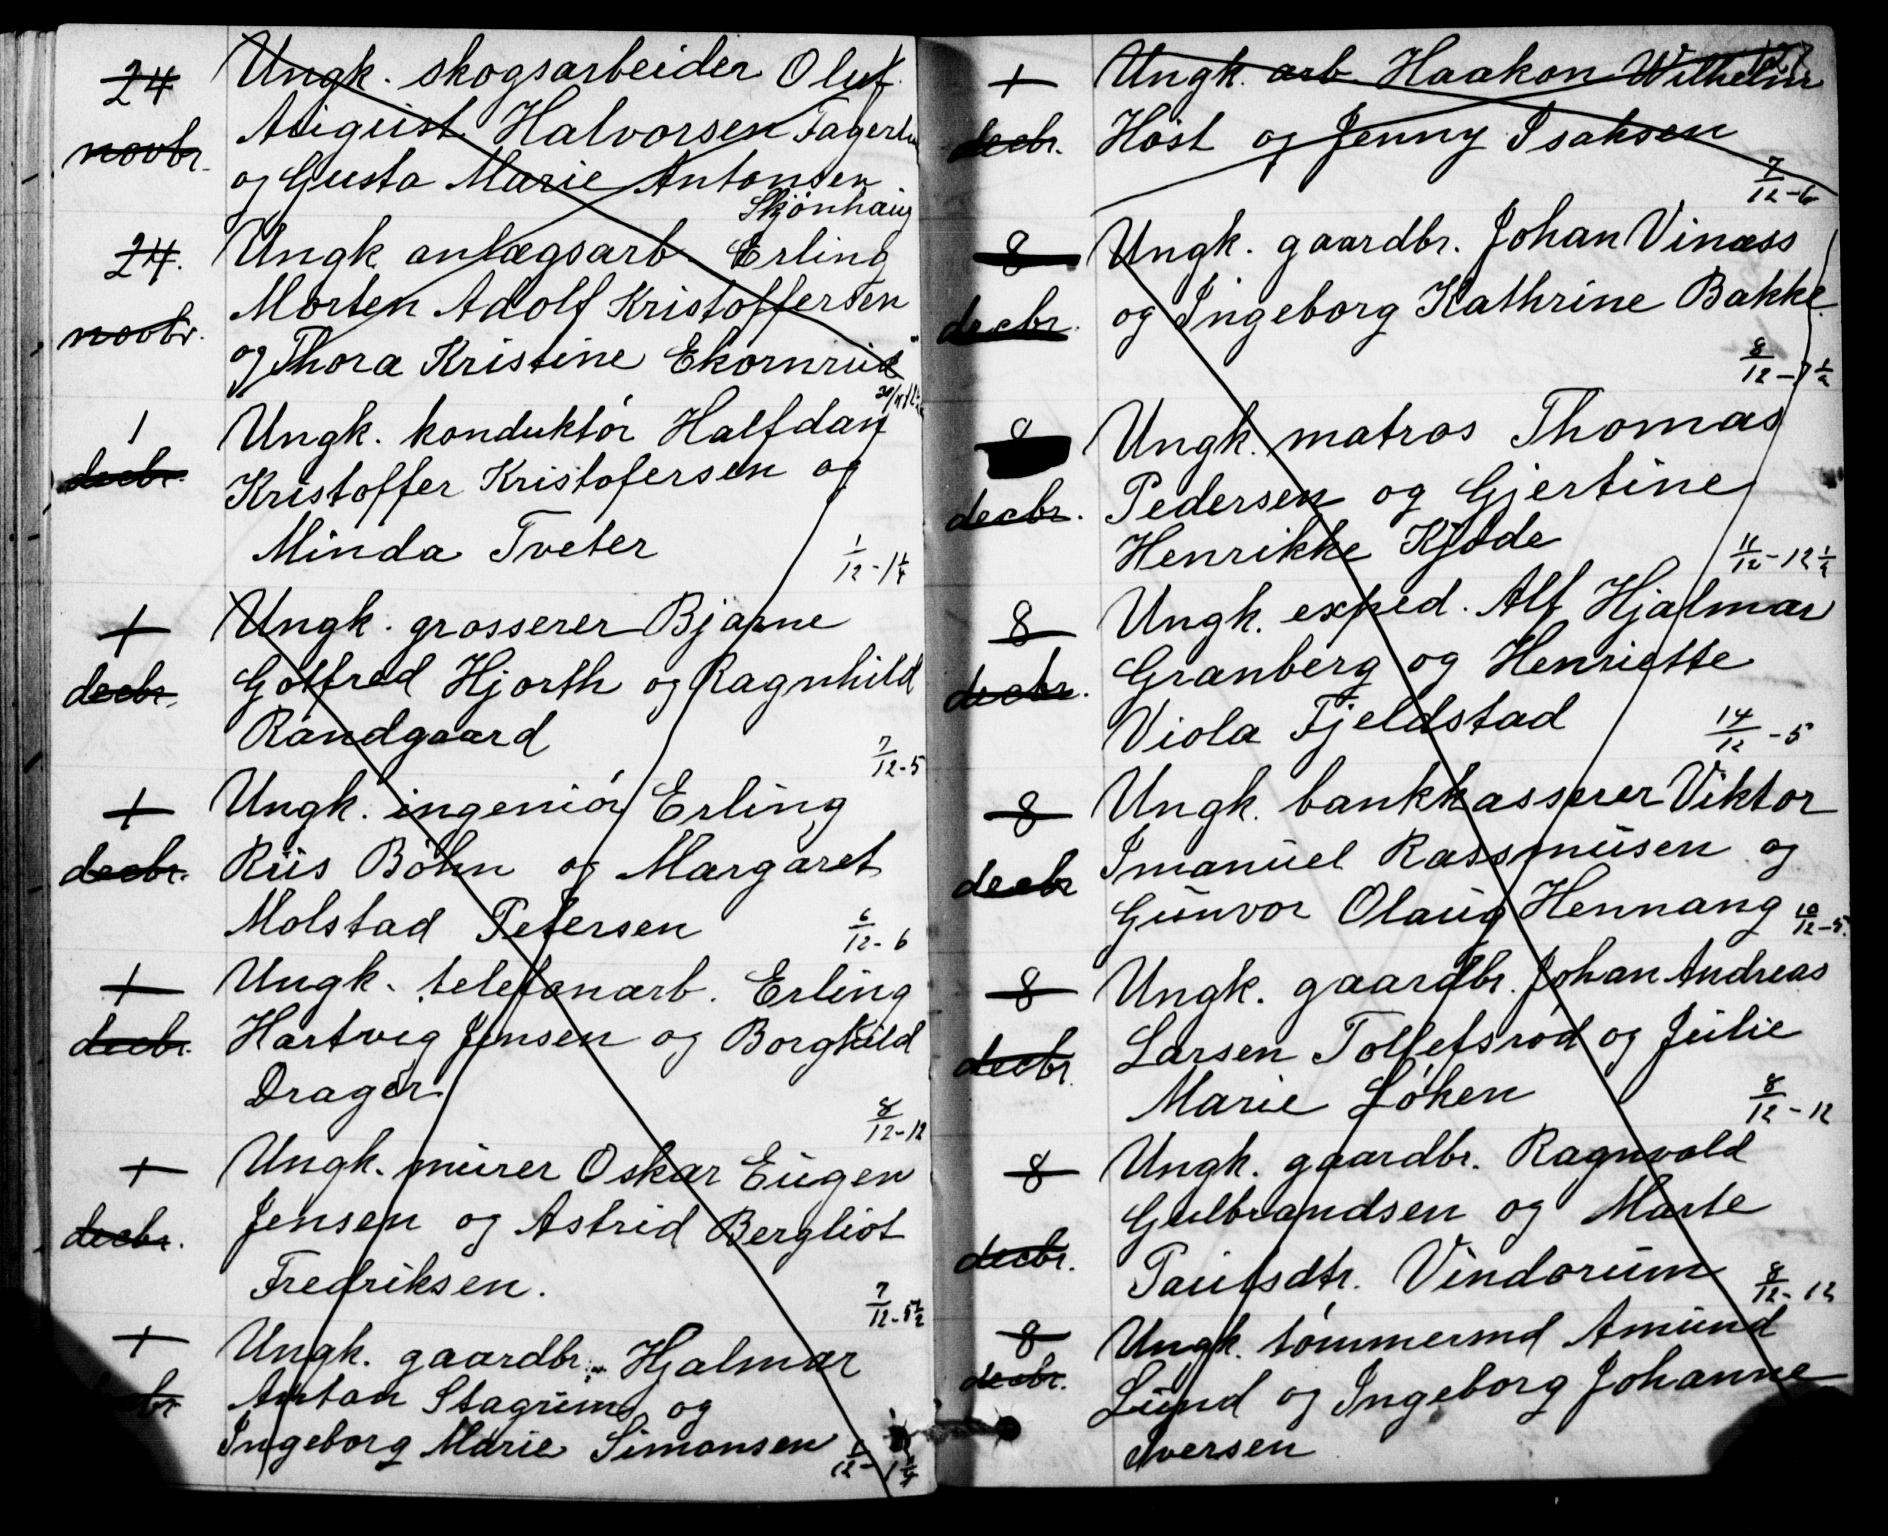 24 Ungk. skogsarbeider Oluf
novbr. August Halvorsen
og Gusta Marie Antonsen
Skjønhaug
24. Ungk. anlægsarb. Erling
novbr. Morten Adolf Kristoffersen
og Thora Kristine Ekornrud
1 Ungk. konduktør Halfdan
decbr. Kristoffer Kristofersen og
Minda Tveter 1/12 - 1 1/4
1 Ungk. grosserer Bjarne
decbr. Gotfred Hjorth og Ragnhild
Randgaard 7/12 - 5
1 Ungk. ingeniør Erling
decbr. Riis Bøhn og Margaret
Molstad Petersen 6/12 - 6
1 Ungk. telefonarb. Erling
decbr. Hartvig Jensen og Borghild
Drager 8/12 - 12
1 Ungk. murer Oskar Eugen
decbr. Jensen og Astrid Bergliot
Fredriksen. 7/12 - 5 1/2
1 Ungk. gaardbr. Hjalmar
decbr Anton Stagrum og
Ingeborg Marie Simonsen
1 Ungk. arb Haakon Wilhelm
decbr. Høst og Jenny Isaksen
7/12 - 6
8 Ungk. gaardbr. Johan Vinæss
decbr. og Ingeborg Kathrine Bakke
8/12 - 1 1/2
8 Ungk. matros Thomas
decbr. Pedersen og Gjertine
Henrikke Kjøde 11/12 - 12 1/2
8 Ungk. exped. Alf Hjalmar
decbr. Granberg og Henriette
Viola Fjeldstad 14/12 - 5
8 Ungk. bankkasserer Viktor
decbr Imanuel Rassmusen og
Gunvor Olaug Hennang 10/12 - 5
8 Ungk. gaardbr. Johan Andreas
decbr. Larsen Tollefsrød og Julie
Marie Løken 8/12 - 12
8 Ungk. gaardbr. Ragnvald
Gulbrandsen og Marte
decbr. Paulsdtr. Vindorum 8/12 - 12
8 Ungk. tømmermd Amund
decbr. Lund og Ingeborg Johanne
Iversen